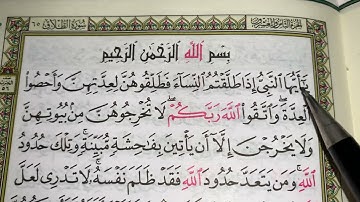 سُورَةُ الطَّلَاقِ ٦٥
بِسْمِ اللَّهِ الرَّحْمَٰنِ الرَّحِيمِ
يَٰٓأَيُّهَا النَّبِيُّ إِذَا طَلَّقْتُمُ النِّسَآءَ فَطَلِّقُوهُنَّ لِعِدَّتِهِنَّ وَأَحْصُوا
الْعِدَّةَ ۖ وَاتَّقُوا اللَّهَ رَبَّكُمْ ۖ لَا تُخْرِجُوهُنَّ مِنۢ بُيُوتِهِنَّ
وَلَا يَخْرُجْنَ إِلَّآ أَن يَأْتِينَ بِفَٰحِشَةٍ مُّبَيِّنَةٍ ۚ وَتِلْكَ حُدُودُ
اللَّهِ ۚ وَمَن يَتَعَدَّ حُدُودَ اللَّهِ فَقَدْ ظَلَمَ نَفْسَهُ ۚ لَا تَدْرِي لَعَلَّ